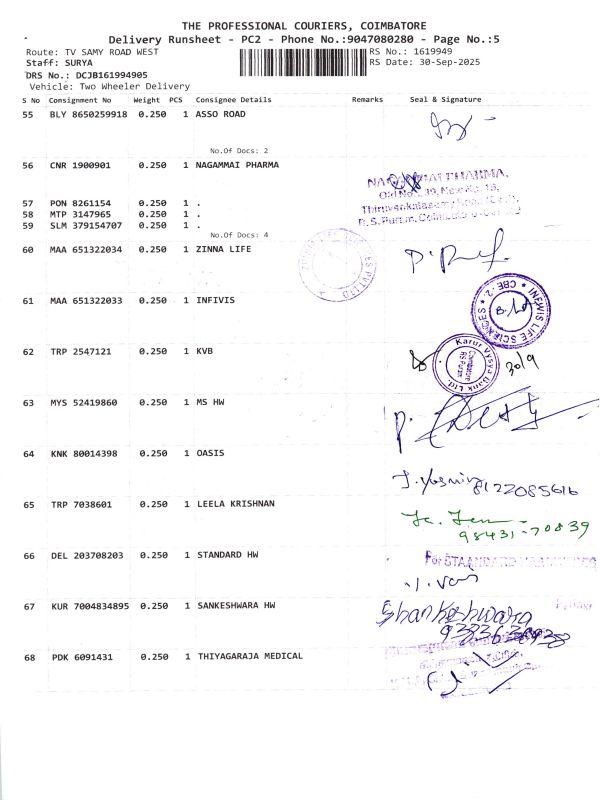 THE PROFESSIONAL COURIERS, COIMBATORE
Delivery Runsheet - PC2 - Phone No.:9047080280 - Page No.:5
Route: TV SAMY ROAD WEST
RS No.: 1619949
Staff: SURYA
RS Date: 30-Sep-2025
DRS No.: DCJB161994905
Vehicle: Two Wheeler Delivery
S No Consignment No Weight PCS Consignee Details Remarks Seal & Signature
55 BLY 8650259918 0.250 1 ASSO ROAD
No.Of Docs: 2
56 CNR 1900901 0.250 1 NAGAMMAI PHARMA
PHARMA,
57 PON 8261154 0.250 1 .
58 MTP 3147965 0.250 1 .
59 SLM 379154707 0.250 1 .
No.Of Docs: 4
60 MAA 651322034 0.250 1 ZINNA LIFE
61 MAA 651322033 0.250 1 INFIVIS
LIFE SCIENCES * CBE-2 *
62 TRP 2547121 0.250 1 KVB
Karur Vysya Bank Ltd.
Coimbatore
30/9
63 MYS 52419860 0.250 1 MS HW
64 KNK 80014398 0.250 1 OASIS
8122085616
65 TRP 7038601 0.250 1 LEELA KRISHNAN
98431-70839
66 DEL 203708203 0.250 1 STANDARD HW
For STAANDARD
67 KUR 7004834895 0.250 1 SANKESHWARA HW
Shankeshwara
68 PDK 6091431 0.250 1 THIYAGARAJA MEDICAL